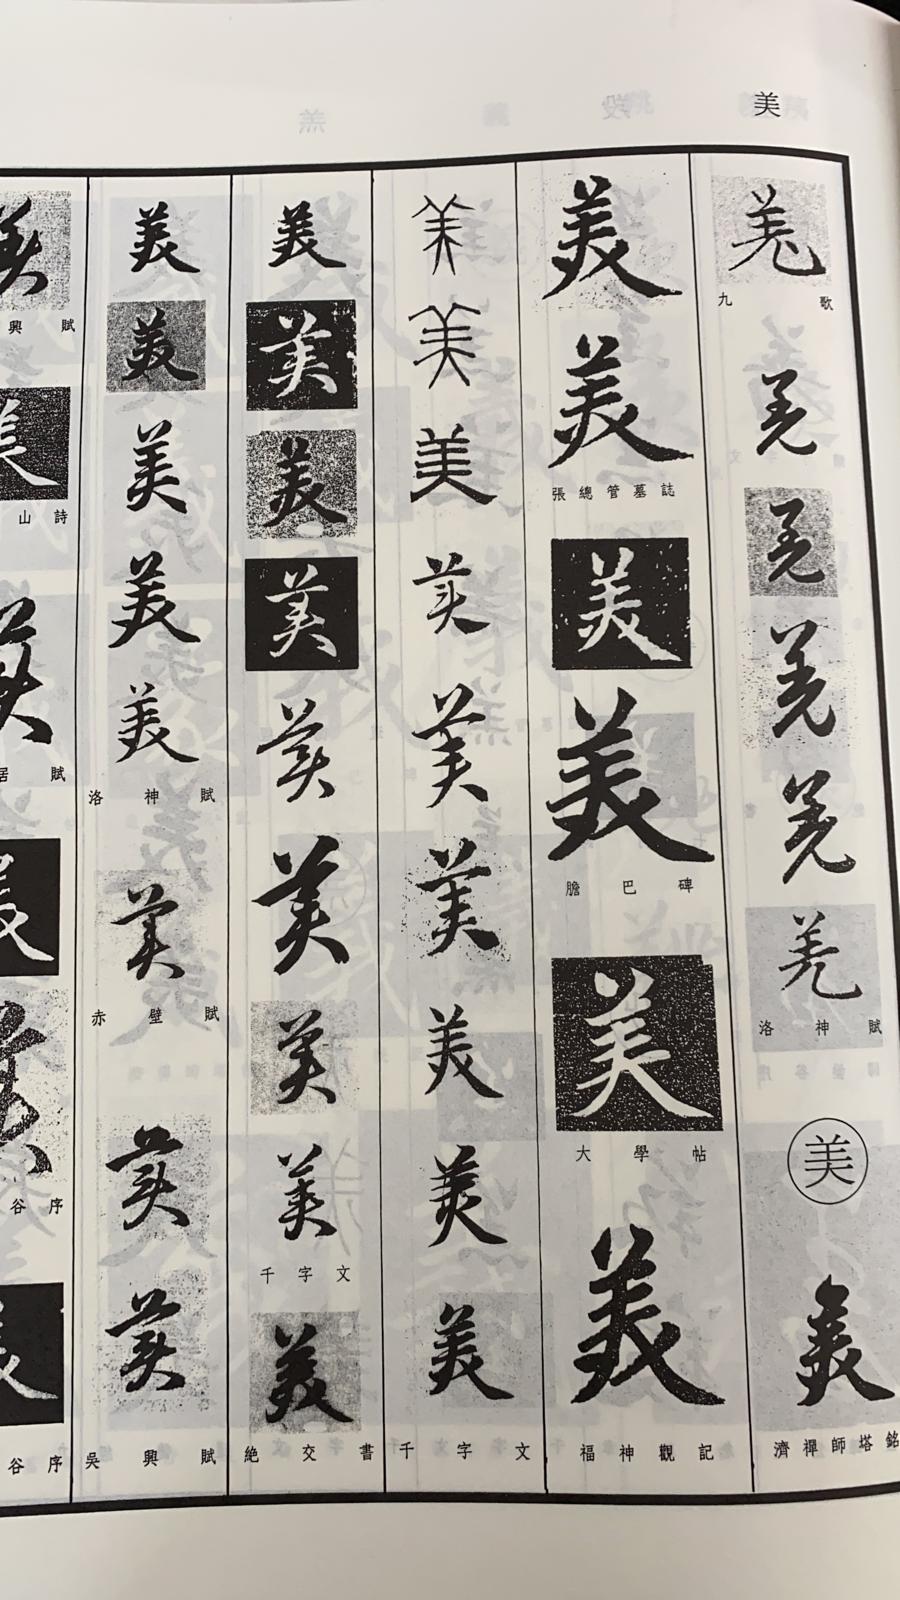 美
羌
九歌
羌
羌
羌
羌
羌
洛神賦
美
美
濟禪師塔銘
美
美
張總管墓誌
美
美
膽巴碑
美
大學帖
美
福神觀記
美
美
美
美
美
美
美
美
美
千字文
美
美
美
美
美
美
美
美
千字文
美
絶交書
美
美
美
美
美
洛神賦
美
赤壁賦
美
美
吳興賦
美
興賦
美
山詩
美
居賦
美
美
谷序
美
谷序